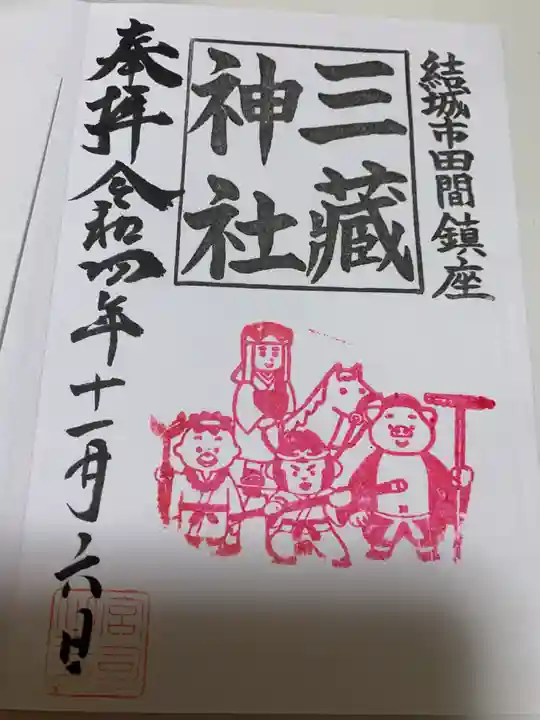 結城市田間鎮座
三藏
神社
奉拝令和四年十一月六日